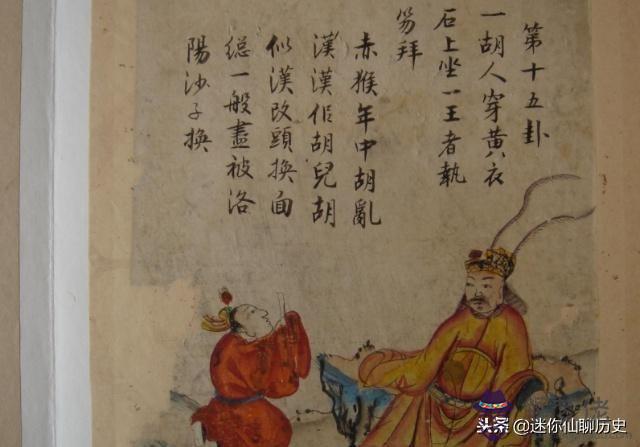 第十五卦
一胡人穿黃衣
石上坐一王者執
笏拜
赤猴年中胡亂
漢漢作胡兒胡
似漢改頭換面
総一般盡被洛
陽沙子換
头条 @迷你仙聊历史